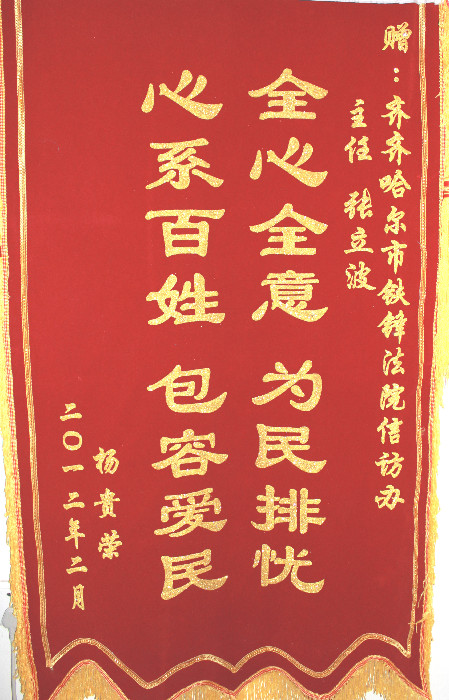 赠：齐齐哈尔市铁锋法院信访办
主任 张立波
全心全意 为民排忧
心系百姓 包容爱民
杨贵荣
二〇一二年二月